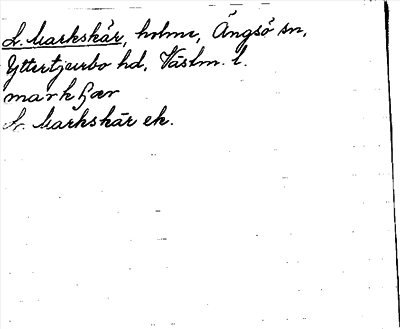 L. Markskär, holme, Ängsö sn,
Yttertjurbo hd, Västm. l.
markʃær
L. Markskär ek.